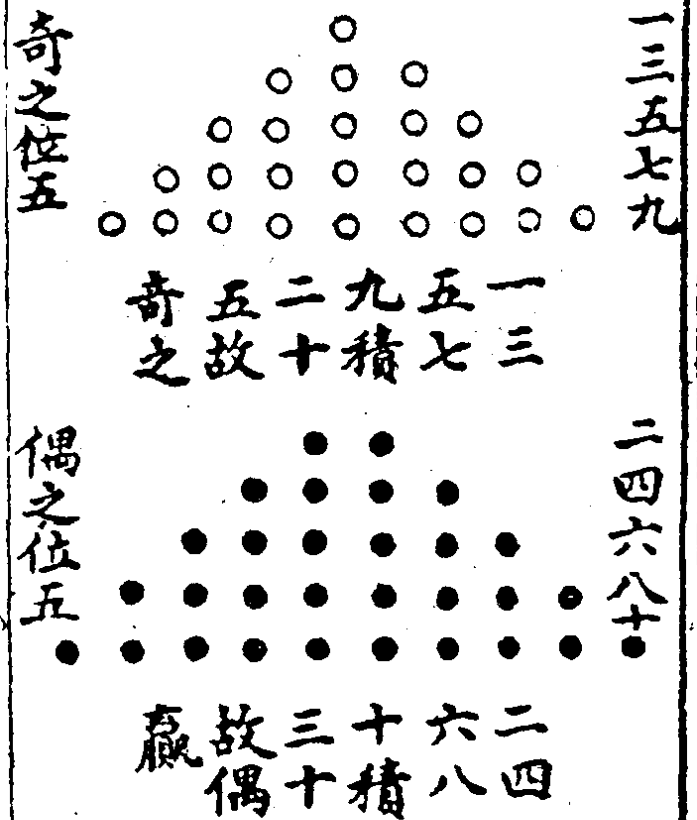 一三五七九
奇之位五
一三
五七
九積
二十
五故
奇之
二四六八十
偶之位五
二四
六八
十積
三十
故偶
贏